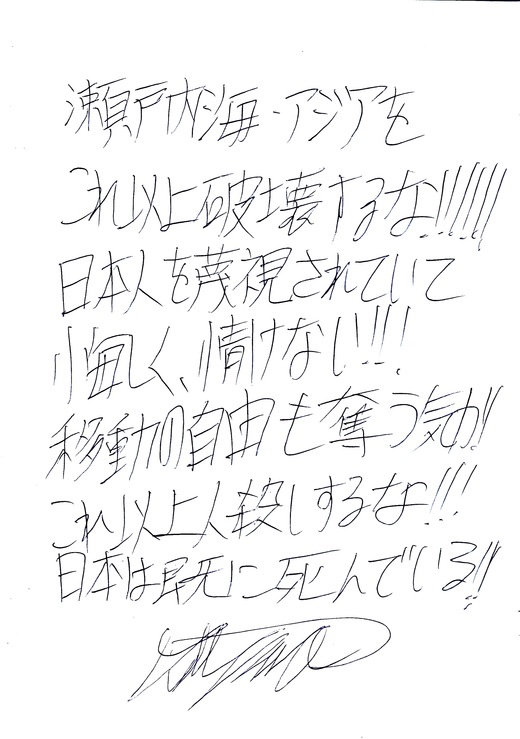 瀬戸内海・アジアを
これ以上破壊するな!!!!!!
日本人を蔑視されていて
悔しく、情けない!!!
移動の自由も奪う気か!!
これ以上人殺しするな!!!
日本は既に死んでいる!!